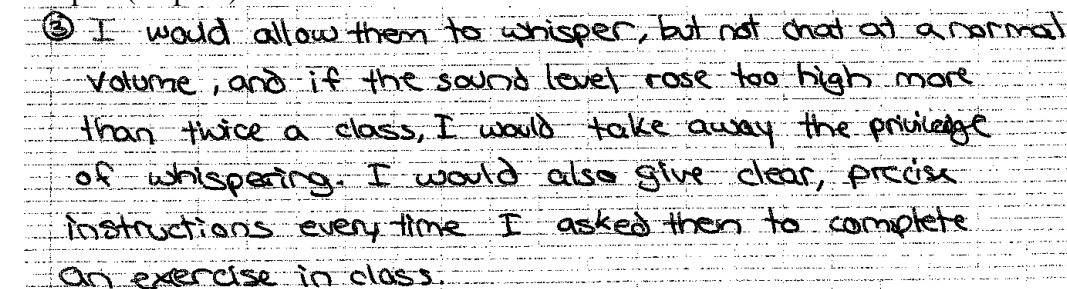 ③ I would allow them to whisper, but not chat at a normal
volume, and if the sound level rose too high more
than twice a class, I would take away the priviledge
of whispering. I would also give clear, precise
instructions every time I asked then to complete
an exercise in class.